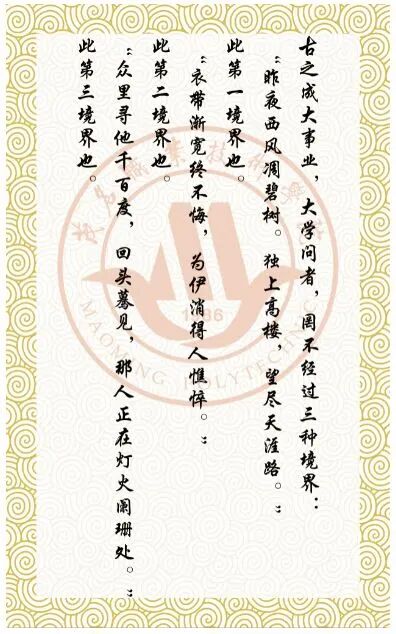 古之成大事业，大学问者，罔不经过三种境界：
“昨夜西风凋碧树。独上高楼，望尽天涯路。”
此第一境界也。
“衣带渐宽终不悔，为伊消得人憔悴。”
此第二境界也。
“众里寻他千百度，回头蓦见，那人正在灯火阑珊处。”
此第三境界也。
MAOMING POLYTECHNIC